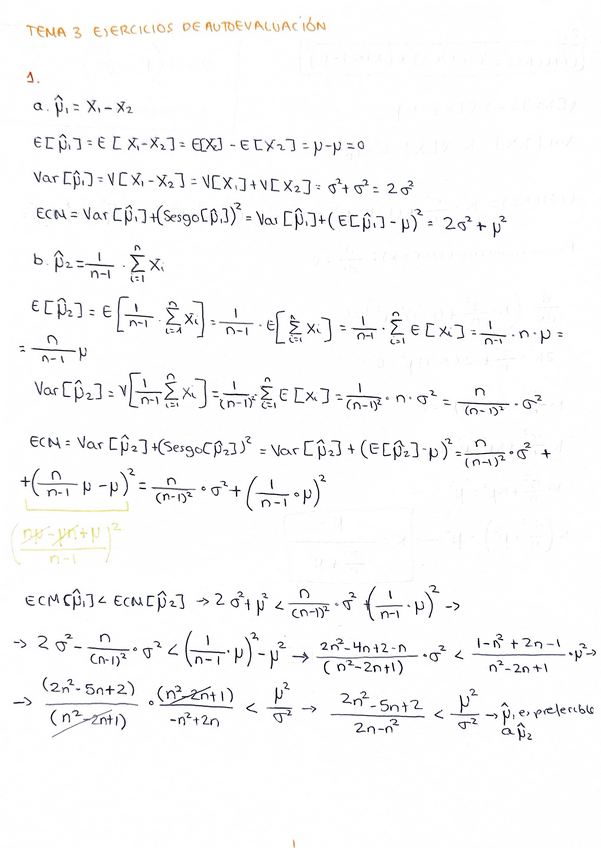 TEMA 3 EJERCICIOS DE AUTOEVALUACIÓN
1.
a. μ̂₁ = X₁ - X₂
E[μ̂₁] = E[X₁-X₂] = E[X₁] - E[X₂] = μ-μ = 0
Var[μ̂₁] = V[X₁-X₂] = V[X₁]+V[X₂] = σ²+σ² = 2σ²
ECM = Var[μ̂₁]+(Sesgo[μ̂₁])² = Var[μ̂₁]+(E[μ̂₁]-μ)² = 2σ²+μ²
b. μ̂₂ = 1/(n-1) · Σᵢ₌₁ⁿ Xᵢ
E[μ̂₂] = E[1/(n-1) · Σᵢ₌₁ⁿ Xᵢ] = 1/(n-1) · E[Σᵢ₌₁ⁿ Xᵢ] = 1/(n-1) · Σᵢ₌₁ⁿ E[Xᵢ] = 1/(n-1) · n · μ =
= n/(n-1) μ
Var[μ̂₂] = V[1/(n-1) Σᵢ₌₁ⁿ Xᵢ] = 1/(n-1)² · Σᵢ₌₁ⁿ E[Xᵢ] = 1/(n-1)² · n · σ² = n/(n-1)² · σ²
ECM = Var[μ̂₂]+(Sesgo[μ̂₂])² = Var[μ̂₂]+(E[μ̂₂]-μ)² = n/(n-1)² · σ² +
+(n/(n-1) μ - μ)² = n/(n-1)² · σ² + (1/(n-1) · μ)²
((nμ - μn + μ)/(n-1))²
ECM[μ̂₁] < ECM[μ̂₂] → 2σ²+μ² < n/(n-1)² · σ² + (1/(n-1) · μ)² →
→ 2σ² - n/(n-1)² · σ² < (1/(n-1) · μ)² - μ² → (2n²-4n+2-n)/(n²-2n+1) · σ² < (1-n²+2n-1)/(n²-2n+1) · μ² →
→ (2n²-5n+2)/(n²-2n+1) · (n²-2n+1)/(-n²+2n) < μ²/σ² → (2n²-5n+2)/(2n-n²) < μ²/σ² → μ̂₁ es preferible
a μ̂₂
1